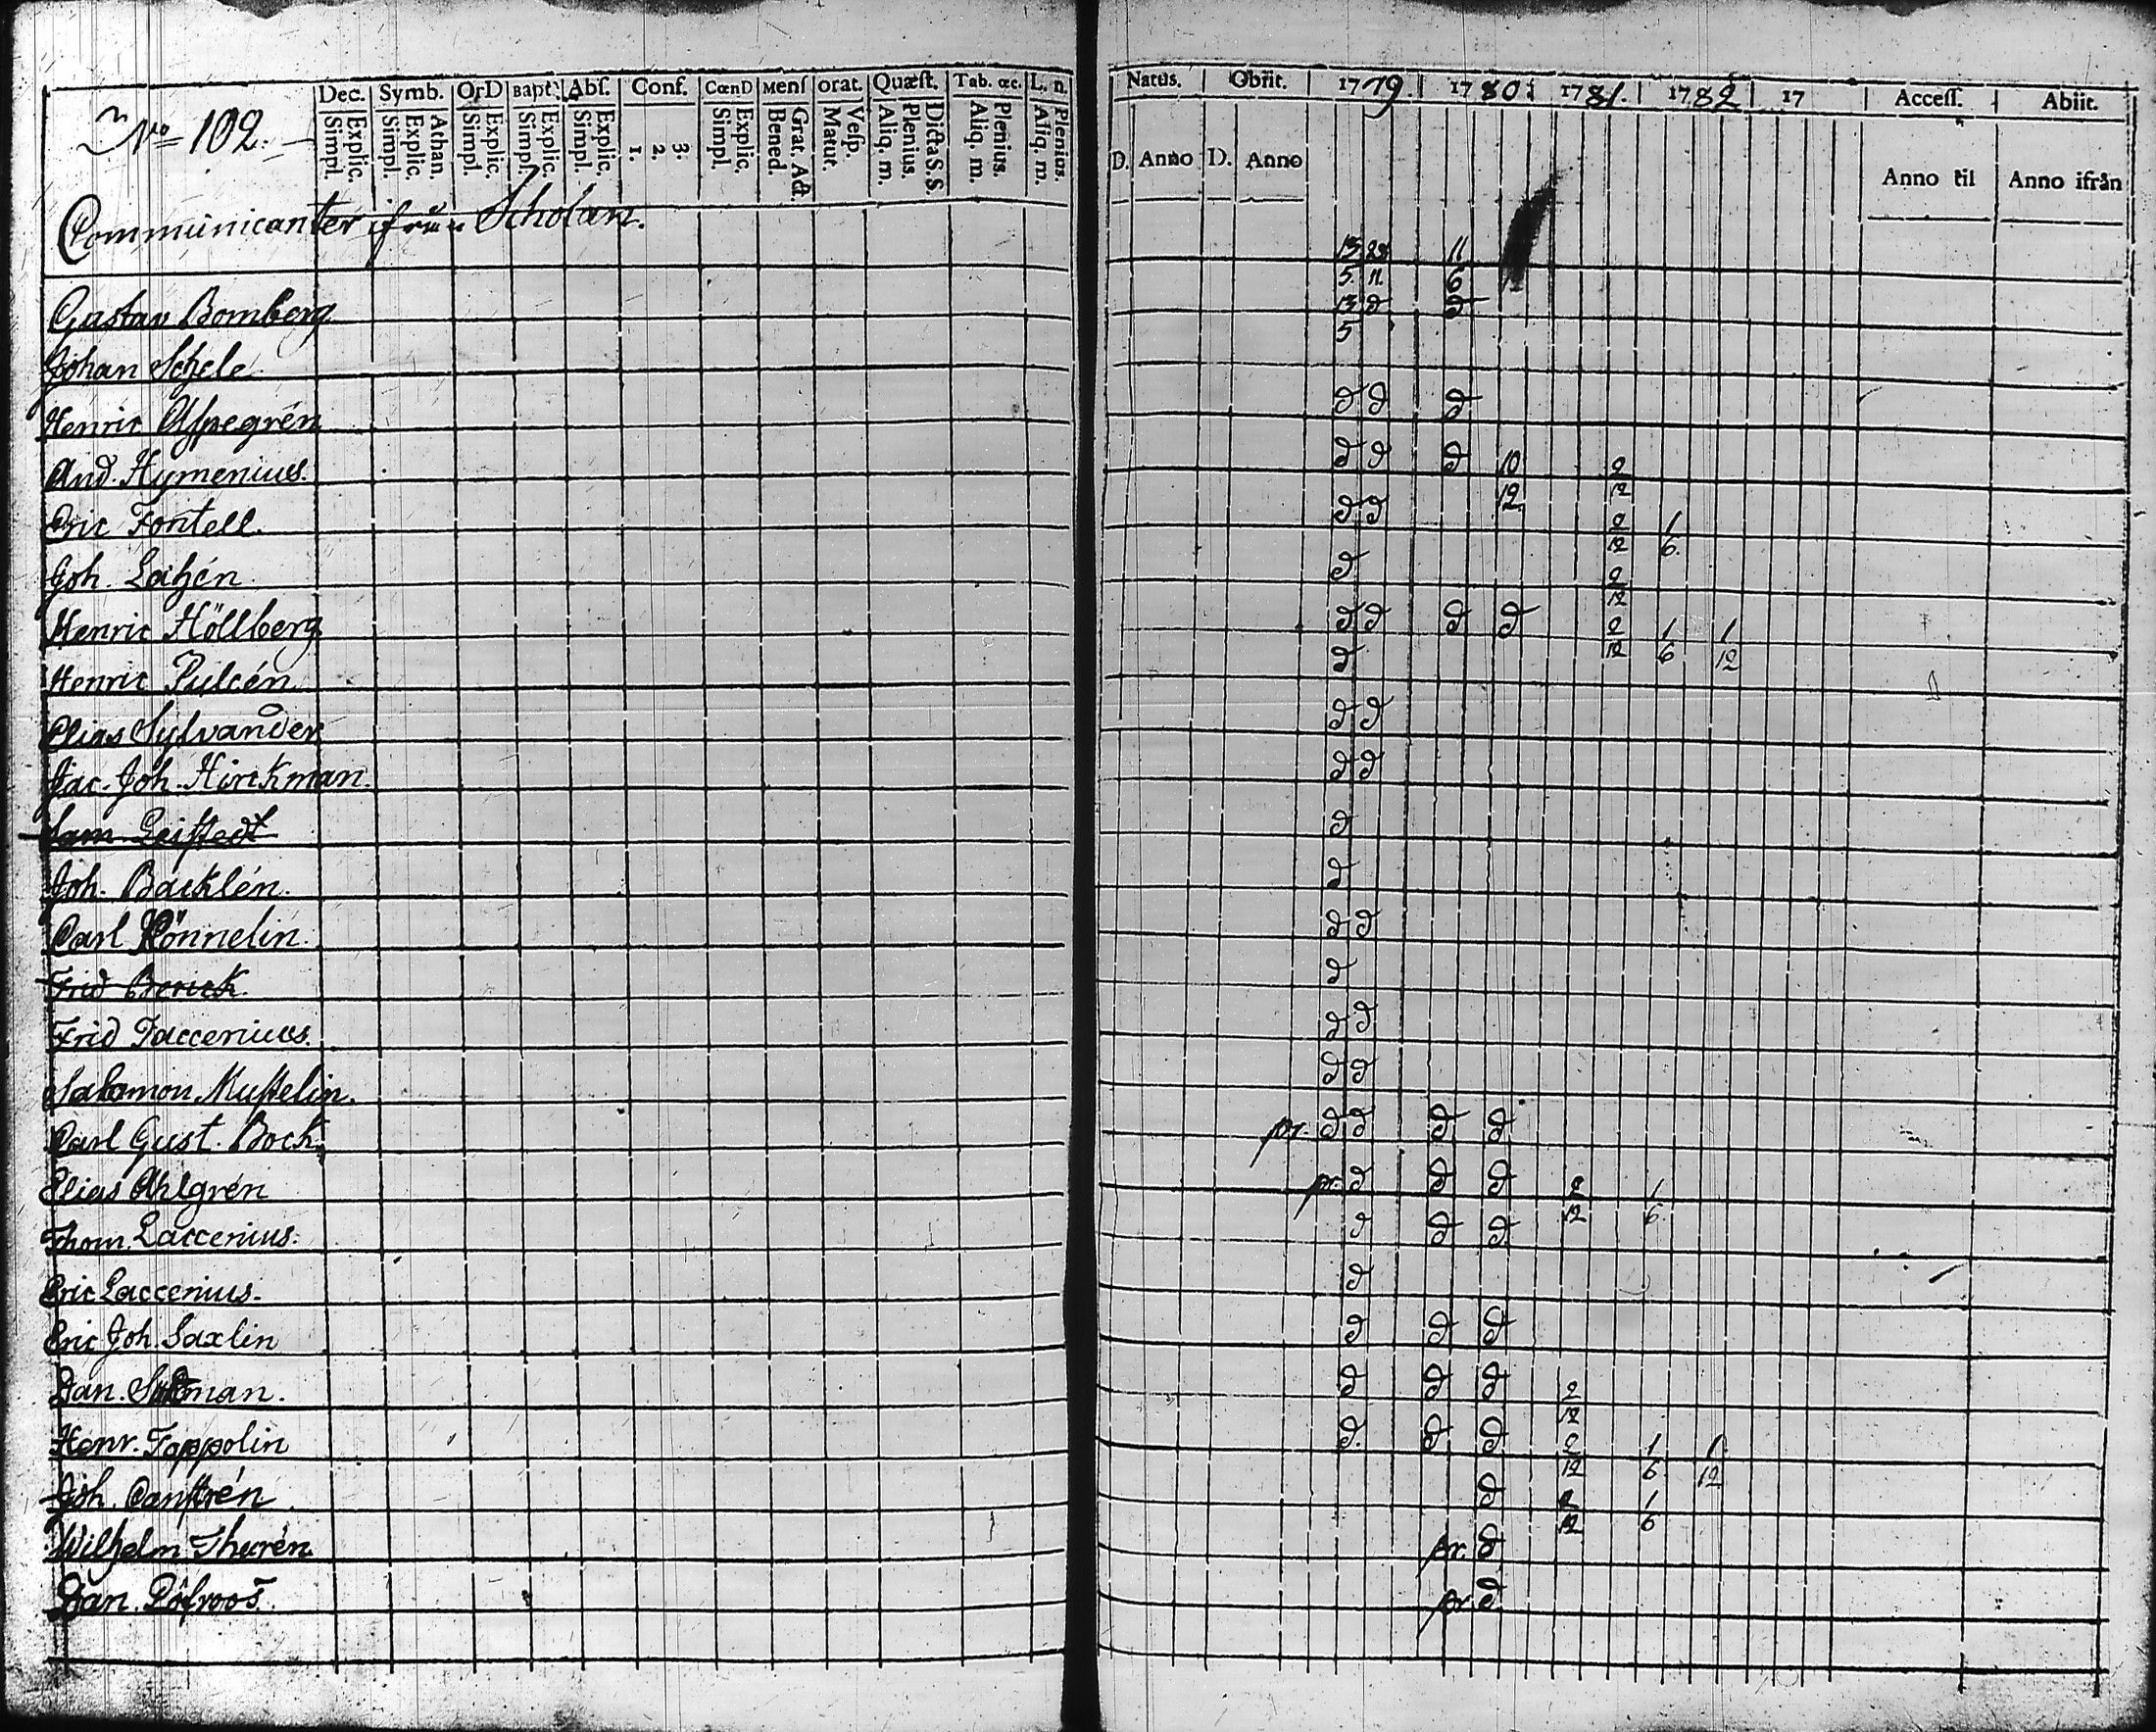 Nro 102.
Dec. Symb. OrD Bapt. Abſ. Conf. CœnD Menſ orat. Quæſt. Tab. œc. L. n.
Simpl. Explic. Simpl. Explic. Athan. Simpl. Explic. Simpl. Explic. Simpl. Explic. 1. 2. 3. Simpl. Explic. Bened. Grat. Act. Matut. Veſp. Aliq. m. Plenius. Dicta S. S. Aliq. m. Plenius. Aliq. m. Plenius.
Communicanter ifrån Scholan.
Gustav Bomberg
Johan Schele
Henric Aspegrén
And. Hymenius.
Eric Fontell.
Joh. Lahén
Henric Höllberg
Henric Pulcén
Elias Sylvander
Jac. Joh. Hirckman.
Sam Leistedt
Joh. Bäcklén.
Carl Rönnelin.
Frid Berick.
Frid Laccenius.
Salamon Mustelin.
Carl Gust. Bock.
Elias Ahlgrén
Thom. Laccenius.
Eric Laccenius.
Eric Joh. Saxlin
Dan. man.
Henr. Toppolin
Joh. Canstrén
Wilhelm Thurén
Dan. Löfroos.
Natus. Obiit. 1779. 1780. 1781. 1782 17 Acceſſ. Abiit.
D. Anno D. Anno Anno til Anno ifrån
13 28 11
5. 11. 6
13 d d
5
d d d
d d d 10 2
12 12
d d 2 1
12 6.
d 2
12
d d d d 2 1 1
d 12 6 12
d d
d d
d
d
d d
d
d d
d d
pr. d d d d
pr. d d d 2 1
12 6.
d d d
d
d d d
d d d 2
12
d. d d 2 1 1
12 6 12
d 2 1
12 6
pr. d
pr. d